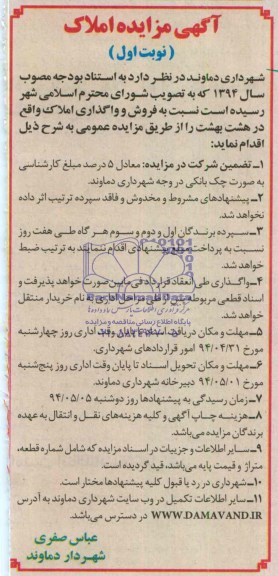 آگهی مزایده املاک
(نوبت اول)
شهرداری دماوند در نظر دارد به استناد بودجه مصوب
سال ۱۳۹۴ که به تصویب شورای محترم اسلامی شهر
رسیده است نسبت به فروش و واگذاری املاک واقع
در هشت بهشت را از طریق مزایده عمومی به شرح ذیل
اقدام نماید:
۱ـ تضمین شرکت در مزایده: معادل ۵ درصد مبلغ کارشناسی
به صورت چک بانکی در وجه شهرداری دماوند.
۲ـ پیشنهادهای مشروط و مخدوش و فاقد سپرده ترتیب اثر داده
نخواهد شد.
۳ـ سپرده برندگان اول و دوم و سوم هرگاه طی هفت روز
نسبت به پرداخت مبلغ پیشنهادی اقدام ننمایند به ترتیب ضبط
خواهد شد.
۴ـ واگذاری طی انعقاد قرارداد فی‌مابین صورت خواهد پذیرفت و
اسناد قطعی مربوطه پس از طی مراحل اداری به نام خریدار منتقل
خواهد شد.
۵ـ مهلت و مکان دریافت اسناد تا پایان وقت اداری روز چهارشنبه
مورخ ۹۴/۰۴/۳۱ امور قراردادهای شهرداری.
۶ـ مهلت و مکان تحویل اسناد تا پایان وقت اداری روز پنج‌شنبه
مورخ ۹۴/۰۵/۰۱ دبیرخانه شهرداری دماوند.
۷ـ زمان رسیدگی به پیشنهادها روز دوشنبه ۹۴/۰۵/۰۵
۸ـ هزینه چاپ آگهی و کلیه هزینه‌های نقل و انتقال به عهده
برندگان مزایده می‌باشد.
۹ـ سایر اطلاعات و جزییات در اسناد مزایده که شامل شماره قطعه،
متراژ و قیمت پایه می‌باشد، قید گردیده است.
۱۰ـ شهرداری در رد یا قبول کلیه پیشنهادها مختار است.
۱۱ـ سایر اطلاعات تکمیل در وب سایت شهرداری دماوند به آدرس
WWW.DAMAVAND.IR در دسترس می‌باشد.
عباس صفری
شهردار دماوند